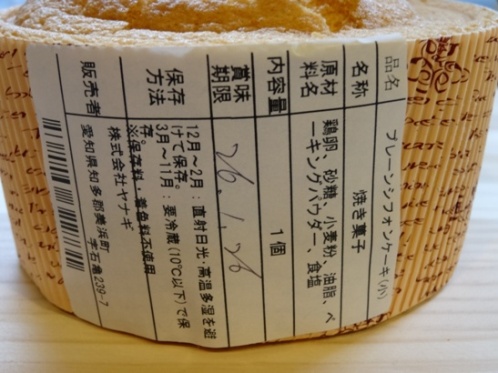 品名 プレーンシフォンケーキ(小)
名称 焼き菓子
原材料名 鶏卵、砂糖、小麦粉、油脂、ベ
ーキングパウダー、食塩
内容量 1個
賞味期限 26.1.26
保存方法 12月～2月：直射日光・高温多湿を避
けて保存。
3月～11月：要冷蔵(10℃以下)で保
存。
※保存料・着色料不使用
販売者 株式会社ヤナギ
愛知県知多郡美浜町
字石亀239-7